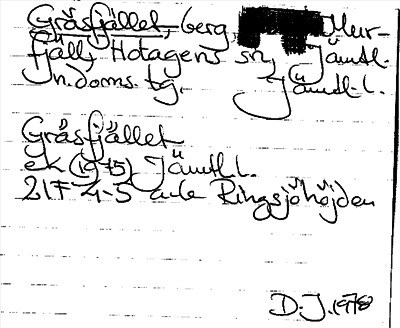 Gråsfjället, berg, Mur-
fjäll, Hotagens sn, Jämtl.
n. doms. tg. Jämtl. l.
Gråsfjället
ek (1975) Jämtl. l.
21F 4-5 a-c Ringsjöhöjden
D.J. 1978